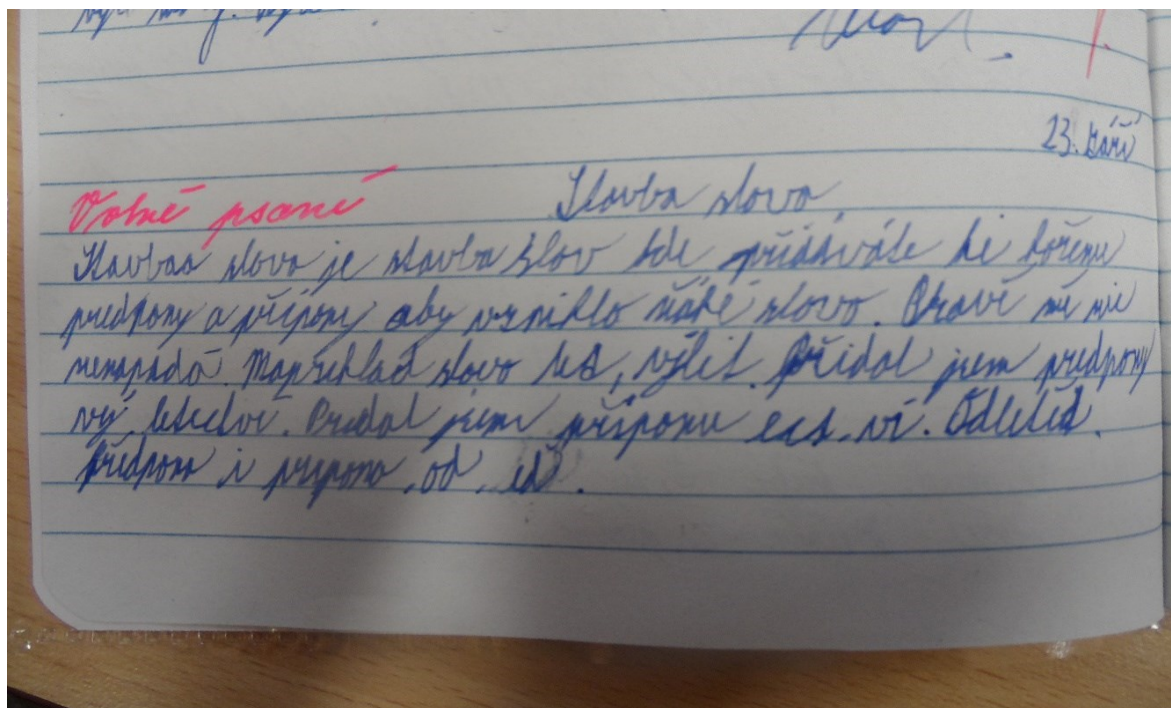 23. září
Volné psaní Stavba slova
Stavbaa slova je stavba slov kde přidáváte ke kořenu
predpony a přípony aby vzniklo ňáké slovo. Pravě mě nic
nenapadá. Například slovo let, výlet. Přidal jsem predpony
vý. letectví. Pridal jsem příponu ect. ví. Odletěd.
Předpona i pripona od.